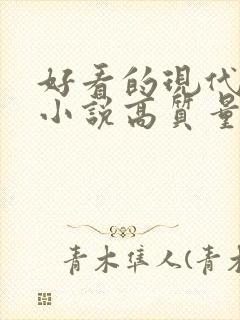 好看的現代
小說高質量
青木隼人(青木